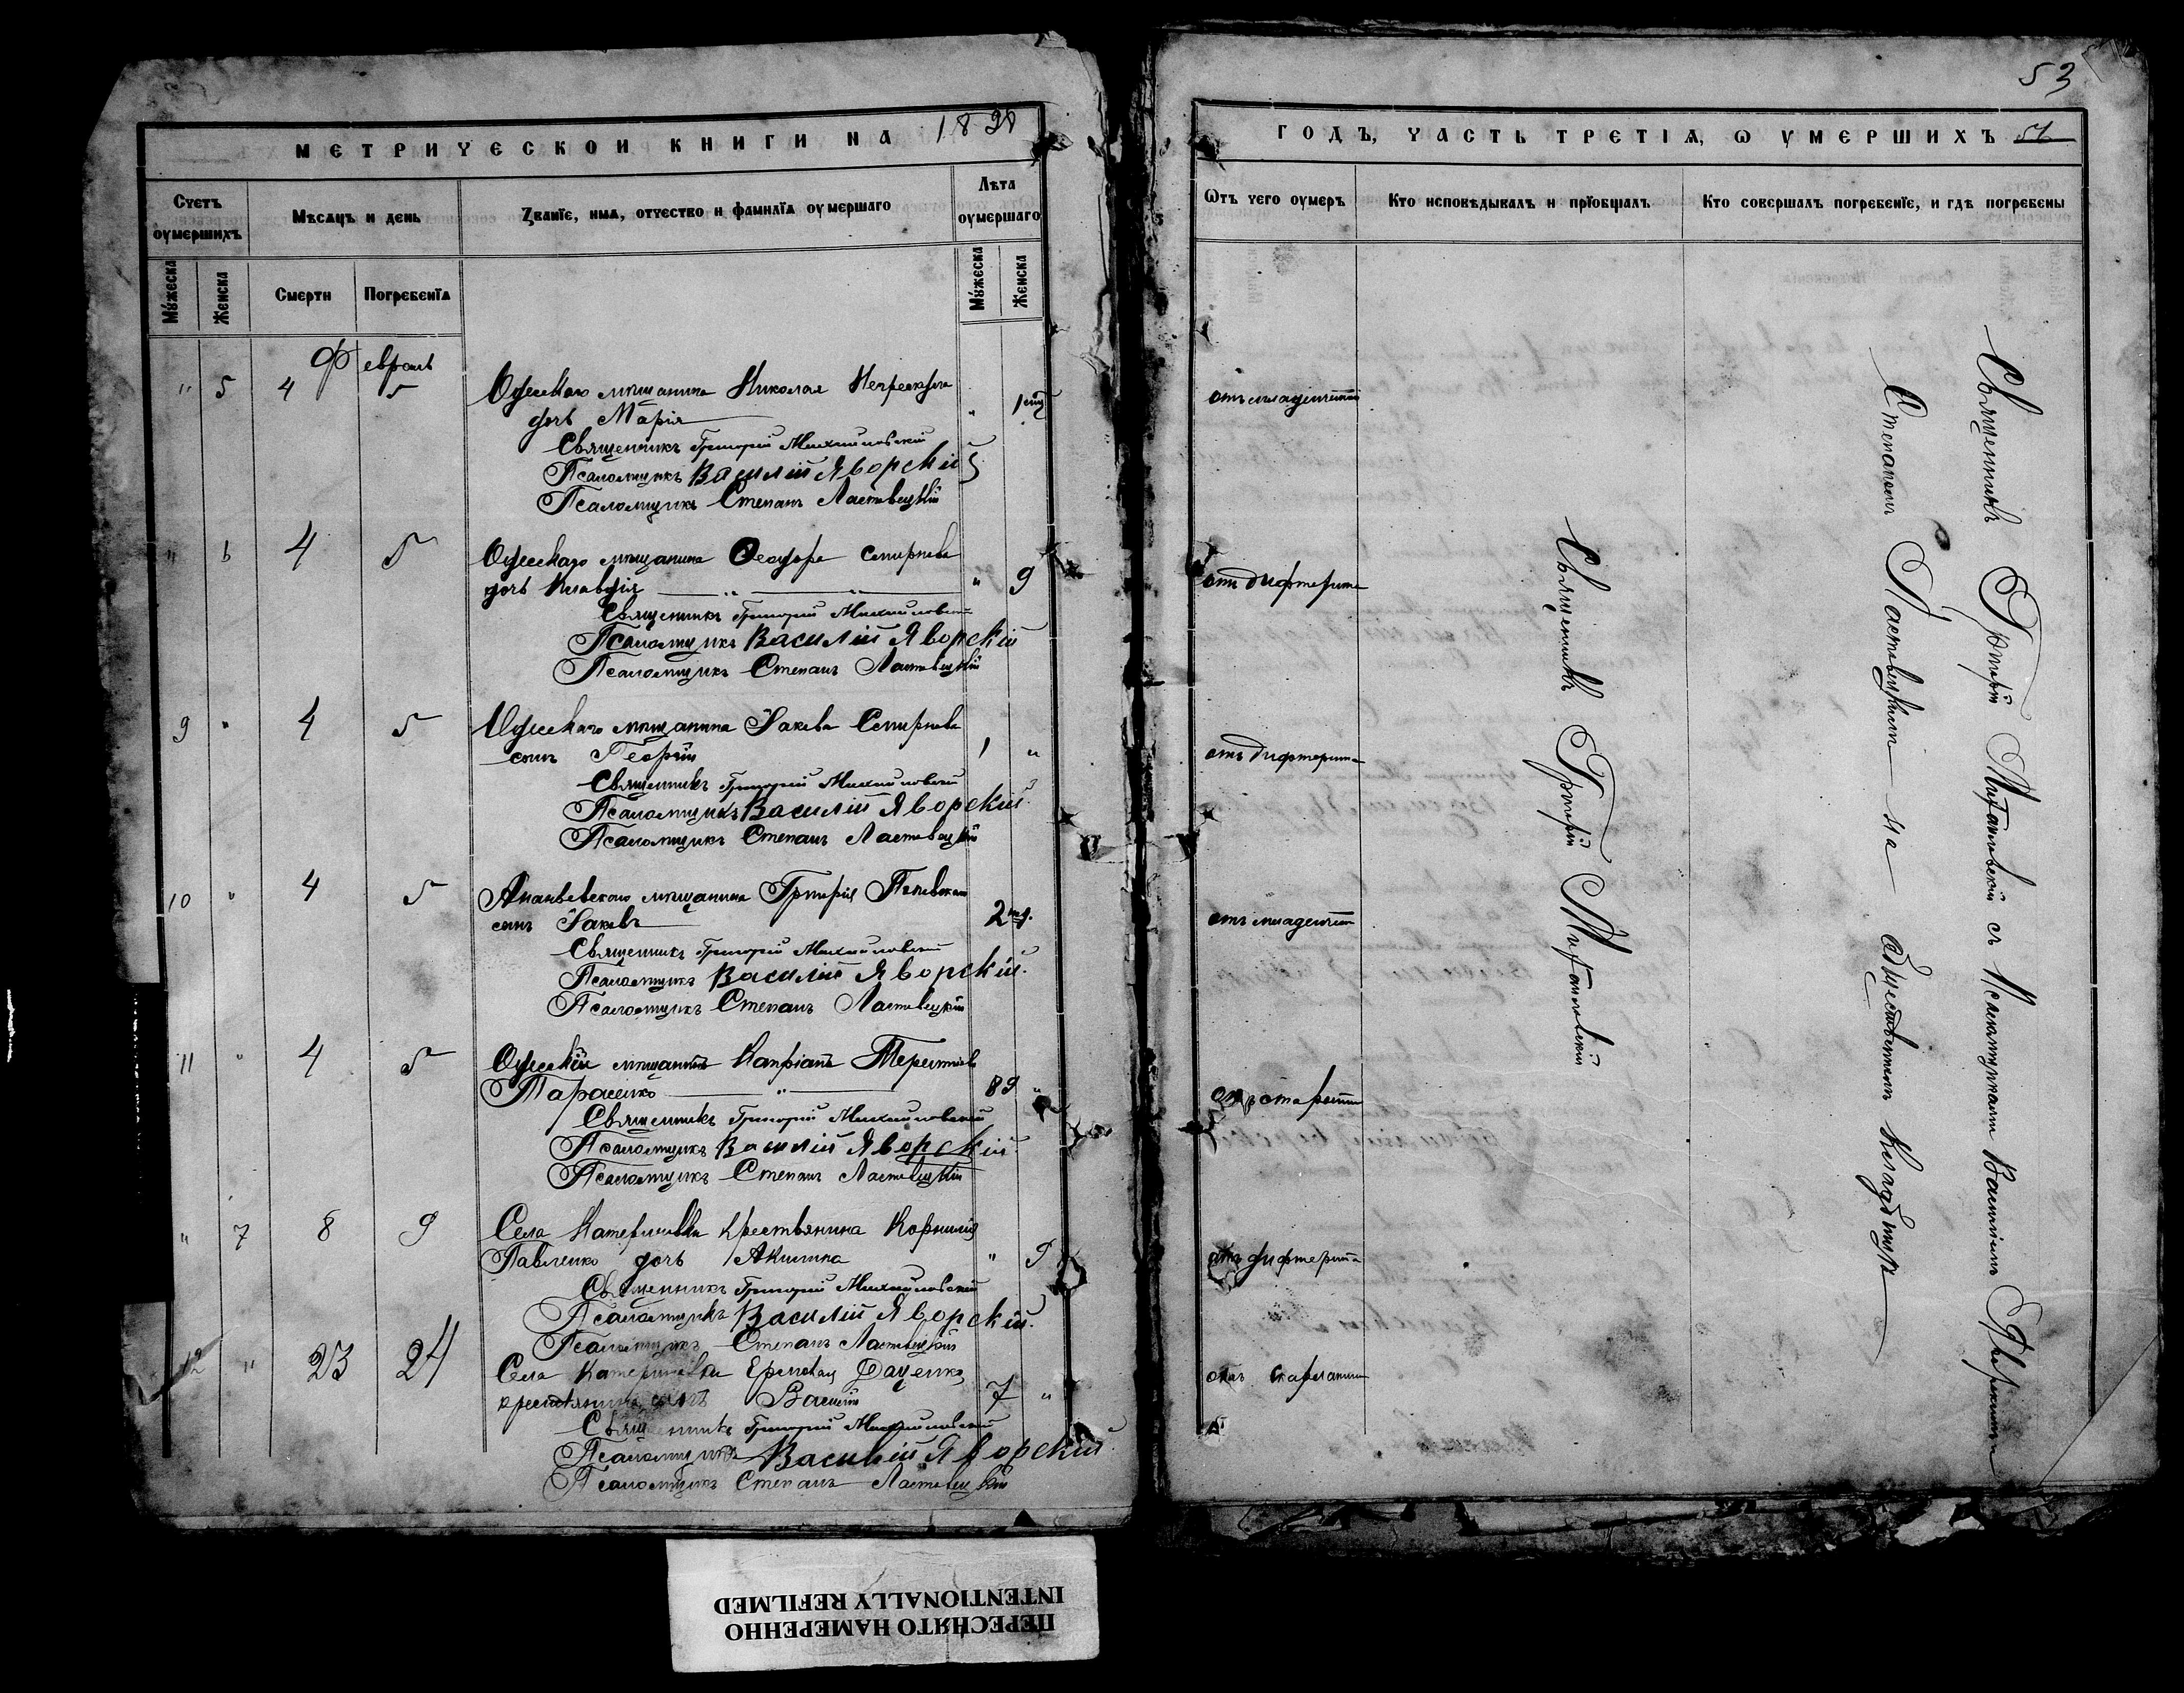 МЕТРИЧЕСКОИ КНИГИ НА 1898
Счетъ оумершихъ
Мѣсяцъ и день
Званїе, имя, отчество и фамилїя оумершаго
Лѣта оумершаго
Мужеска
Женска
Смерти
Погребенїя
Мужеска
Женска
Февраль
" 5 4 5 Одесскаго мѣщанина Николая
дочь Марія " 1
Священникъ Григорій Михайловскій
Псаломщикъ Василій Яворскій
Псаломщикъ Степанъ Ластовецкій
" 6 4 5 Одесскаго мѣщанина Ѳеодора Смирнова
дочь Клавдія " 9
Священникъ Григорій Михайловскій
Псаломщикъ Василій Яворскій
Псаломщикъ Степанъ Ластовецкій
9 " 4 5 Одесскаго мѣщанина Іакова Смирнова
сынъ Георгій 1 "
Священникъ Григорій Михайловскій
Псаломщикъ Василій Яворскій
Псаломщикъ Степанъ Ластовецкій
10 " 4 5 Ананьевскаго мѣщанина Григорія
сынъ Іаковъ 2 нед.
Священникъ Григорій Михайловскій
Псаломщикъ Василій Яворскій
Псаломщикъ Степанъ Ластовецкій
11 " 4 5 Одесскій мѣщанинъ Кипріанъ Терентіевъ
Тарасенко 89 "
Священникъ Григорій Михайловскій
Псаломщикъ Василій Яворскій
Псаломщикъ Степанъ Ластовецкій
" 7 8 9 Села Катериновки крестьянина Корнилія
Павленко дочь Акилина " 9
Священникъ Григорій Михайловскій
Псаломщикъ Василій Яворскій
Псаломщикъ Степанъ Ластовецкій
12 " 23 24 Села Катериновки Ермолая Даценко
крестьянина сынъ Василій 7 "
Священникъ Григорій Михайловскій
Псаломщикъ Василій Яворскій
Псаломщикъ Степанъ Ластовецкій
53
ГОДЪ, ЧАСТЬ ТРЕТІЯ, Ѡ УМЕРШИХЪ 51
Ѿтъ чего оумеръ
Кто исповѣдывалъ и прїобщалъ
Кто совершалъ погребенїе, и гдѣ погребены
отъ младенческой
отъ дифтерита
отъ дифтерита
отъ младенческой
отъ старости
отъ дифтерита
отъ скарлатины
Священникъ Григорій Михайловскій
Священникъ Григорій Михайловскій съ Псаломщиками Василіемъ Яворскимъ
Степаномъ Ластовецкимъ на общественномъ кладбищѣ
ПЕРЕСНЯТО НАМЕРЕННО
INTENTIONALLY REFILMED